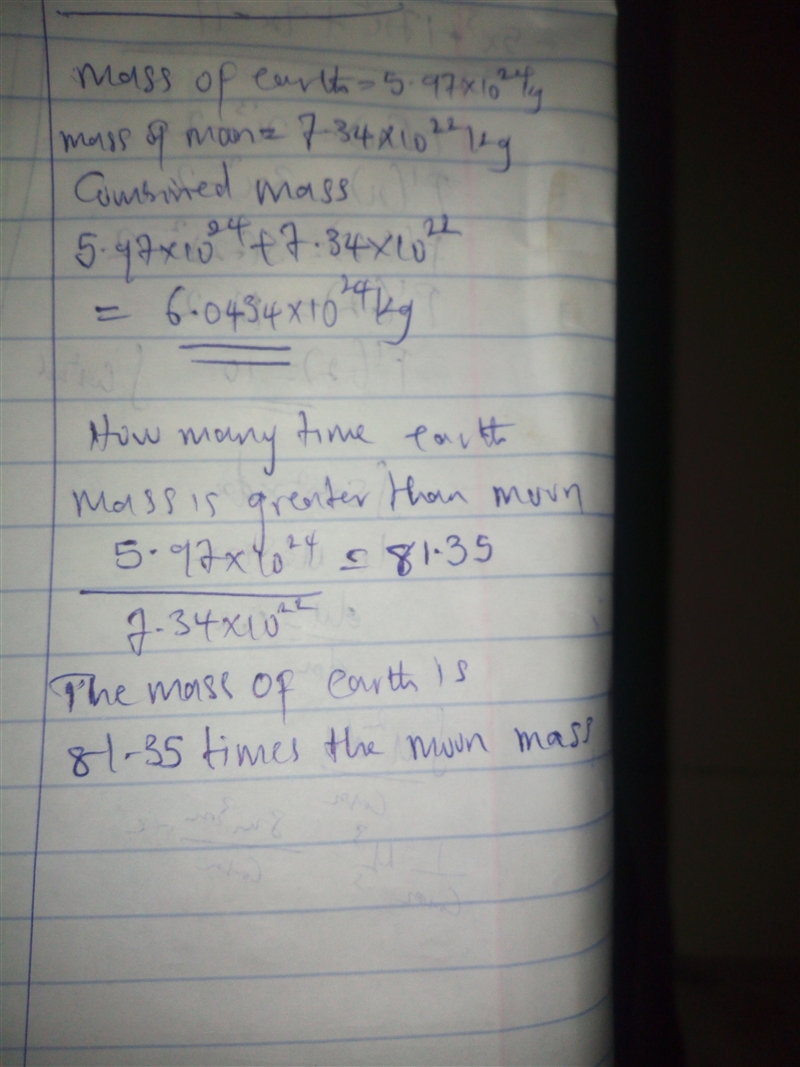 Mass of earth = 5.97×10²⁴kg
mass of moon = 7.34×10²²kg
Combined mass
5.97×10²⁴ + 7.34×10²²
= 6.0434×10²⁴kg
How many time earth
Mass is greater than moon
5.97×10²⁴ = 81.35
7.34×10²²
The mass of earth is
81.35 times the moon mass